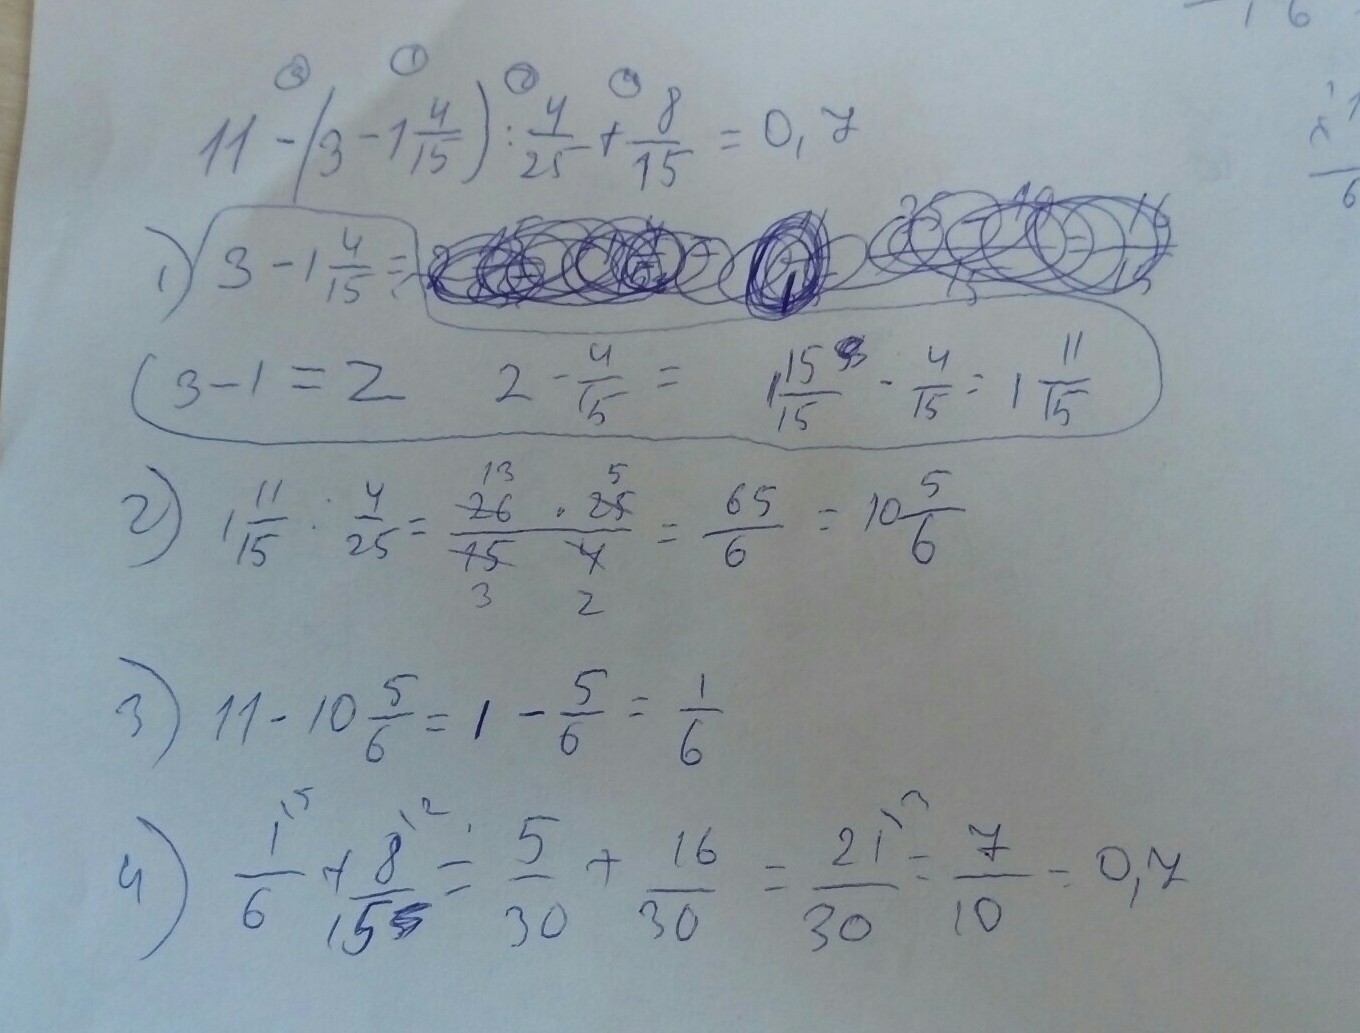 ③ ① ② ④
11 - (3 - 1 4/15) : 4/25 + 8/15 = 0,7
1) 3 - 1 4/15 =
3 - 1 = 2 2 - 4/15 = 1 15/15 - 4/15 = 1 11/15
2) 1 11/15 : 4/25 = 26 · 25 / 15 4 = 65/6 = 10 5/6
13 5
3 2
3) 11 - 10 5/6 = 1 - 5/6 = 1/6
4) 1/6 + 8/15 = 5/30 + 16/30 = 21/30 = 7/10 = 0,7